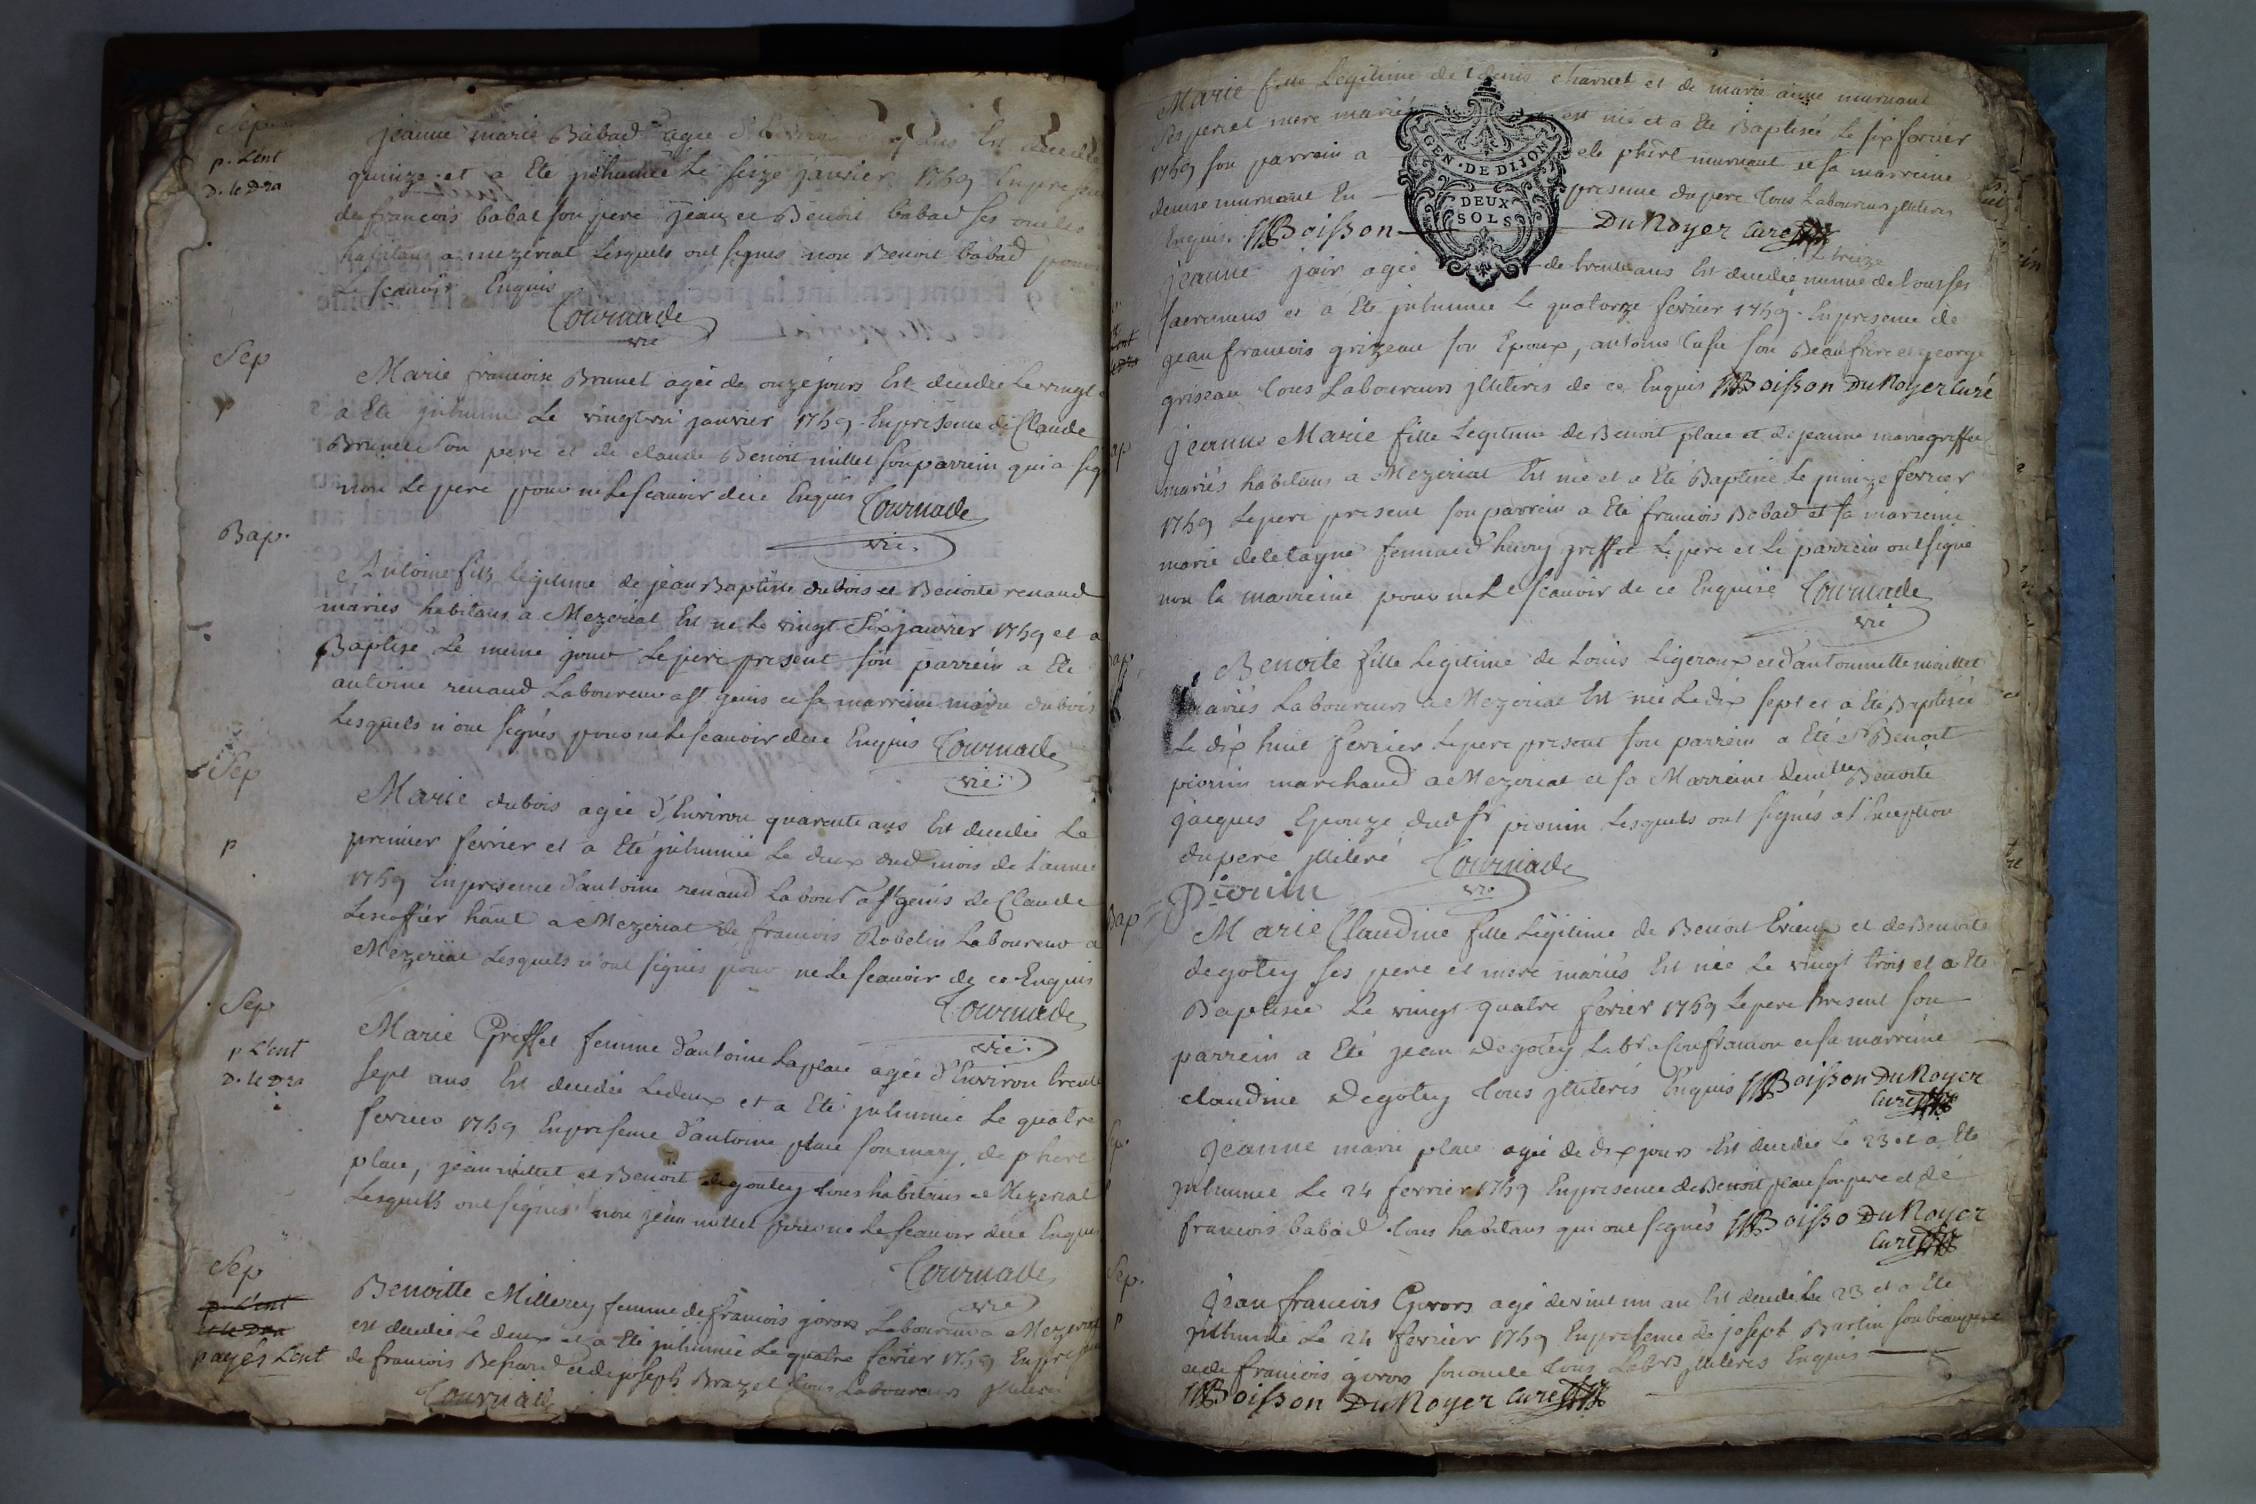 Sep
p. L'ent
D. le Dra
jeanne marie Babad agée d'
quinze et a Eté jnhumée Le seize janvier 1769 En presen
de francois babat son pere jean et Benoit babad ses oncles
habitans a mezeriat Lesquels ont signes non Benoit babad pour
Le scauoir Enquis
Tournade
vic
Sep
p
Marie francoise Brunet agée de onze jours Est decedée Le vingt
a Eté jnhumée Le vingt un janvier 1769. En presence de Claude
Brunet son pere et de claude Benoit millet son parrein qui a sig
non Le pere pour ne Le scauoir de ce Enquis Tournade
vic.
Bap.
Antoine fils legitime de jean Baptiste dubois et Benoite renaud
mariés habitans a Mezeriat Est ne Le vingt Six janvier 1769 et a
Baptise Le meme jour Le pere present son parrein a Eté
antoine renaud Laboureur a St genis et sa marreine marie dubois
Lesquels n'ont signés pour ne Le scauoir de ce Enquis Tournade
vic.
Sep
p
Marie dubois agée d'Environ quarente ans Est decedée Le
premier fevrier et a Eté jnhumée Le deux dud mois de L'annee
1769 En presence d'antoine renaud Labour a St genis de Claude
Lescoffier habt a Mezeriat de francois Robelin Laboureur a
Mezeriat Lesquels n'ont signés pour ne Le scauoir de ce Enquis
Tournade
vic.
Sep
p L'ent
D. le Dra
Marie Griffet femme d'antoine Laplace agée d'Environ trente
sept ans Est decedée Le deux et a Eté jnhumée Le quatre
fevrier 1769 En presence d'antoine place son mary, de phert
place, jean millet et Benoit degoutey tous habitans a Mezeriat
Lesquels ont signés non jean millet pour ne Le scauoir de ce Enquis
Tournade
vic
Sep
p. L'ent
et le Dra
payés L'ent
Benoitte Millerey femme de francois gorors Laboureur a Mezeriat
est decedée Le deux et a Eté jnhumée Le quatre fevrier 1769 En presen
de francois Befrard et de joseph Brazet tous Laboureurs jlliteres
Tournade
Marie fille Legitime de denis charnet et de marie anne murnant
ses pere et mere mariés est née et a Eté Baptisée Le six fevrier
1769 son parrein a ete phert murnant et sa marreine
denise murnant En presence du pere tous Laboureurs jlliteres
Enquis. Boisson DuNoyer Curé
GEN. DE DIJON
DEUX
SOLS
L treize
jeanne jair agée de trente ans Est decedée munie de tous ses
sacremens et a Eté jnhumée Le quatorze fevrier 1769. En presence de
jean francois grizeau son Epoux, antoine son Beaufrere et george
griseau tous Laboureurs jlliterés de ce Enquis Boisson DuNoyer Curé
Bap
jeanne Marie fille Legitime de Benoit place et de jeanne marie griffet
mariés habitans a Mezeriat Est née et a Eté Baptisée Le quinze fevrier
1769 Le pere present son parrein a Eté francois Babad et sa marreine
marie femme d'henry griffet Le pere et Le parrein ont signe
non la marreine pour ne Le scauoir de ce Enquise Tournade
vic
Bap
Benoite fille Legitime de Louis Ligeroux et d'antoinnette millet
mariés Laboureurs a Mezeriat Est née Le dix sept et a Eté Baptisée
Le dix huit fevrier Le pere present son parrein a Eté Sr Benoit
pionin marchand a Mezeriat et sa Marreine Benoite
jacques Epouze dud Sr pionin Lesquels ont signés a l'Exception
du pere jlliteré Tournade
vic
Pionin
Bap
Marie Claudine fille Légitime de Benoit Erieux et de Benoite
degotey ses pere et mere mariés Est née Le vingt trois et a Eté
Baptisée Le vingt quatre fevrier 1769 Le pere present son
parrein a Eté jean Degotey Labr a Confrancon et sa marreine
claudine Degotey tous jlliterés Enquis Boisson DuNoyer
Curé
Sep.
jeanne marie place agée de dix jours Est decedée Le 23 et a Eté
jnhumée Le 24 fevrier 1769 En presence de Benoit place son pere et de
francois babad tous habitans qui ont signés Boisso DuNoyer
Curé
Sep.
p
jean francois Gorors agé de vint un an Est decedé Le 23 et a Eté
jnhumé Le 24 fevrier 1769 En presence de josept Bartin son beaupere
et de francois gorors son oncle tous Labrs jlliteres Enquis
Boisson DuNoyer Curé